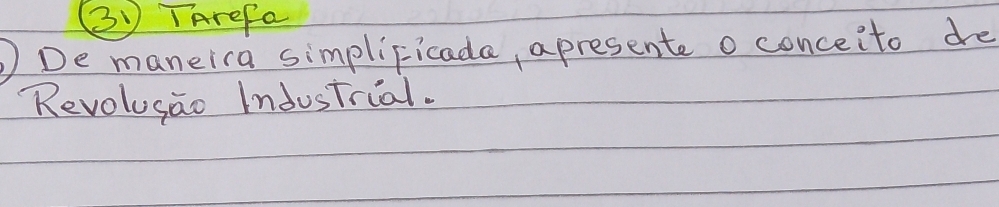 31 TArefa
De maneira simplificada, apresente o conceito de
Revolução Industrial.